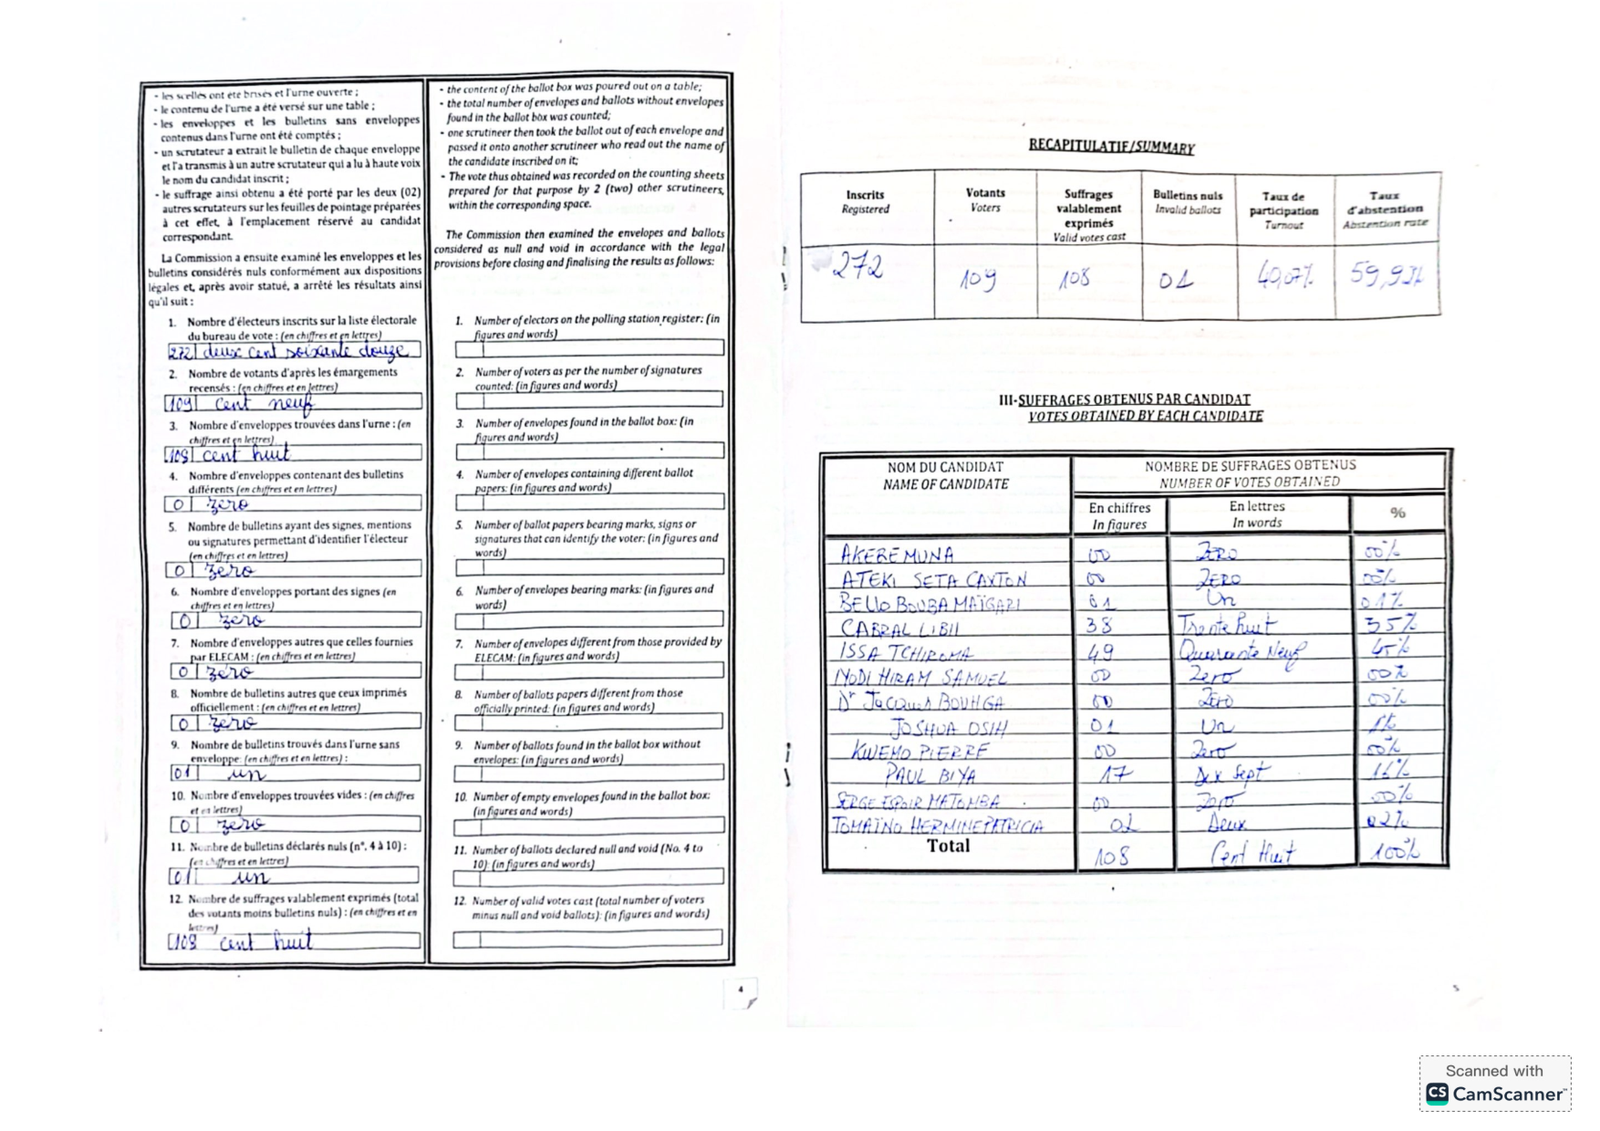 - les scellés ont été brisés et l'urne ouverte ;
- le contenu de l'urne a été versé sur une table ;
- les enveloppes et les bulletins sans enveloppes
contenus dans l'urne ont été comptés ;
- un scrutateur a extrait le bulletin de chaque enveloppe
et l'a transmis à un autre scrutateur qui a lu à haute voix
le nom du candidat inscrit ;
- le suffrage ainsi obtenu a été porté par les deux (02)
autres scrutateurs sur les feuilles de pointage préparées
à cet effet, à l'emplacement réservé au candidat
correspondant.
La Commission a ensuite examiné les enveloppes et les
bulletins considérés nuls conformément aux dispositions
légales et, après avoir statué, a arrêté les résultats ainsi
qu'il suit :
1. Nombre d'électeurs inscrits sur la liste électorale
du bureau de vote : (en chiffres et en lettres)
272 deux cent soixante douze
2. Nombre de votants d'après les émargements
recensés : (en chiffres et en lettres)
109 cent neuf
3. Nombre d'enveloppes trouvées dans l'urne : (en
chiffres et en lettres)
108 cent huit
4. Nombre d'enveloppes contenant des bulletins
différents (en chiffres et en lettres)
0 zero
5. Nombre de bulletins ayant des signes, mentions
ou signatures permettant d'identifier l'électeur
(en chiffres et en lettres)
0 zero
6. Nombre d'enveloppes portant des signes (en
chiffres et en lettres)
0 zero
7. Nombre d'enveloppes autres que celles fournies
par ELECAM : (en chiffres et en lettres)
0 zero
8. Nombre de bulletins autres que ceux imprimés
officiellement : (en chiffres et en lettres)
0 zero
9. Nombre de bulletins trouvés dans l'urne sans
enveloppe: (en chiffres et en lettres) :
01 un
10. Nombre d'enveloppes trouvées vides : (en chiffres
et en lettres)
0 zero
11. Nombre de bulletins déclarés nuls (n°. 4 à 10) :
(en chiffres et en lettres)
01 un
12. Nombre de suffrages valablement exprimés (total
des votants moins bulletins nuls) : (en chiffres et en
lettres)
108 cent huit
- the content of the ballot box was poured out on a table;
- the total number of envelopes and ballots without envelopes
found in the ballot box was counted;
- one scrutineer then took the ballot out of each envelope and
passed it onto another scrutineer who read out the name of
the candidate inscribed on it;
- The vote thus obtained was recorded on the counting sheets
prepared for that purpose by 2 (two) other scrutineers,
within the corresponding space.
The Commission then examined the envelopes and ballots
considered as null and void in accordance with the legal
provisions before closing and finalising the results as follows:
1. Number of electors on the polling station register: (in
figures and words)
2. Number of voters as per the number of signatures
counted: (in figures and words)
3. Number of envelopes found in the ballot box: (in
figures and words)
4. Number of envelopes containing different ballot
papers: (in figures and words)
5. Number of ballot papers bearing marks, signs or
signatures that can identify the voter: (in figures and
words)
6. Number of envelopes bearing marks: (in figures and
words)
7. Number of envelopes different from those provided by
ELECAM: (in figures and words)
8. Number of ballots papers different from those
officially printed: (in figures and words)
9. Number of ballots found in the ballot box without
envelopes: (in figures and words)
10. Number of empty envelopes found in the ballot box:
(in figures and words)
11. Number of ballots declared null and void (No. 4 to
10): (in figures and words)
12. Number of valid votes cast (total number of voters
minus null and void ballots): (in figures and words)
4
RECAPITULATIF/SUMMARY
Inscrits Registered | Votants Voters | Suffrages valablement exprimés Valid votes cast | Bulletins nuls Invalid ballots | Taux de participation Turnout | Taux d'abstention Abstention rate
272 | 109 | 108 | 01 | 40,07% | 59,93%
III-SUFFRAGES OBTENUS PAR CANDIDAT
VOTES OBTAINED BY EACH CANDIDATE
NOM DU CANDIDAT NAME OF CANDIDATE | NOMBRE DE SUFFRAGES OBTENUS NUMBER OF VOTES OBTAINED
En chiffres In figures | En lettres In words | %
AKERE MUNA 00 ZERO 00%
ATEKI SETA CAXTON 00 ZERO 00%
BELLO BOUBA MAÏGARI 01 Un 01%
CABRAL LIBII 38 Trente huit 35%
ISSA TCHIROMA 49 Quarante Neuf 45%
IYODI HIRAM SAMUEL 00 Zero 00%
Dr Jacques BOUHGA 00 Zero 00%
JOSHUA OSIH 01 Un 1%
KWEMO PIERRE 00 Zero 00%
PAUL BIYA 17 Dix Sept 16%
SERGE ESPOIR MATOMBA 00 Zero 00%
TOMAÏNO HERMINE PATRICIA 02 Deux 02%
Total 108 Cent Huit 100%
Scanned with
CS CamScanner